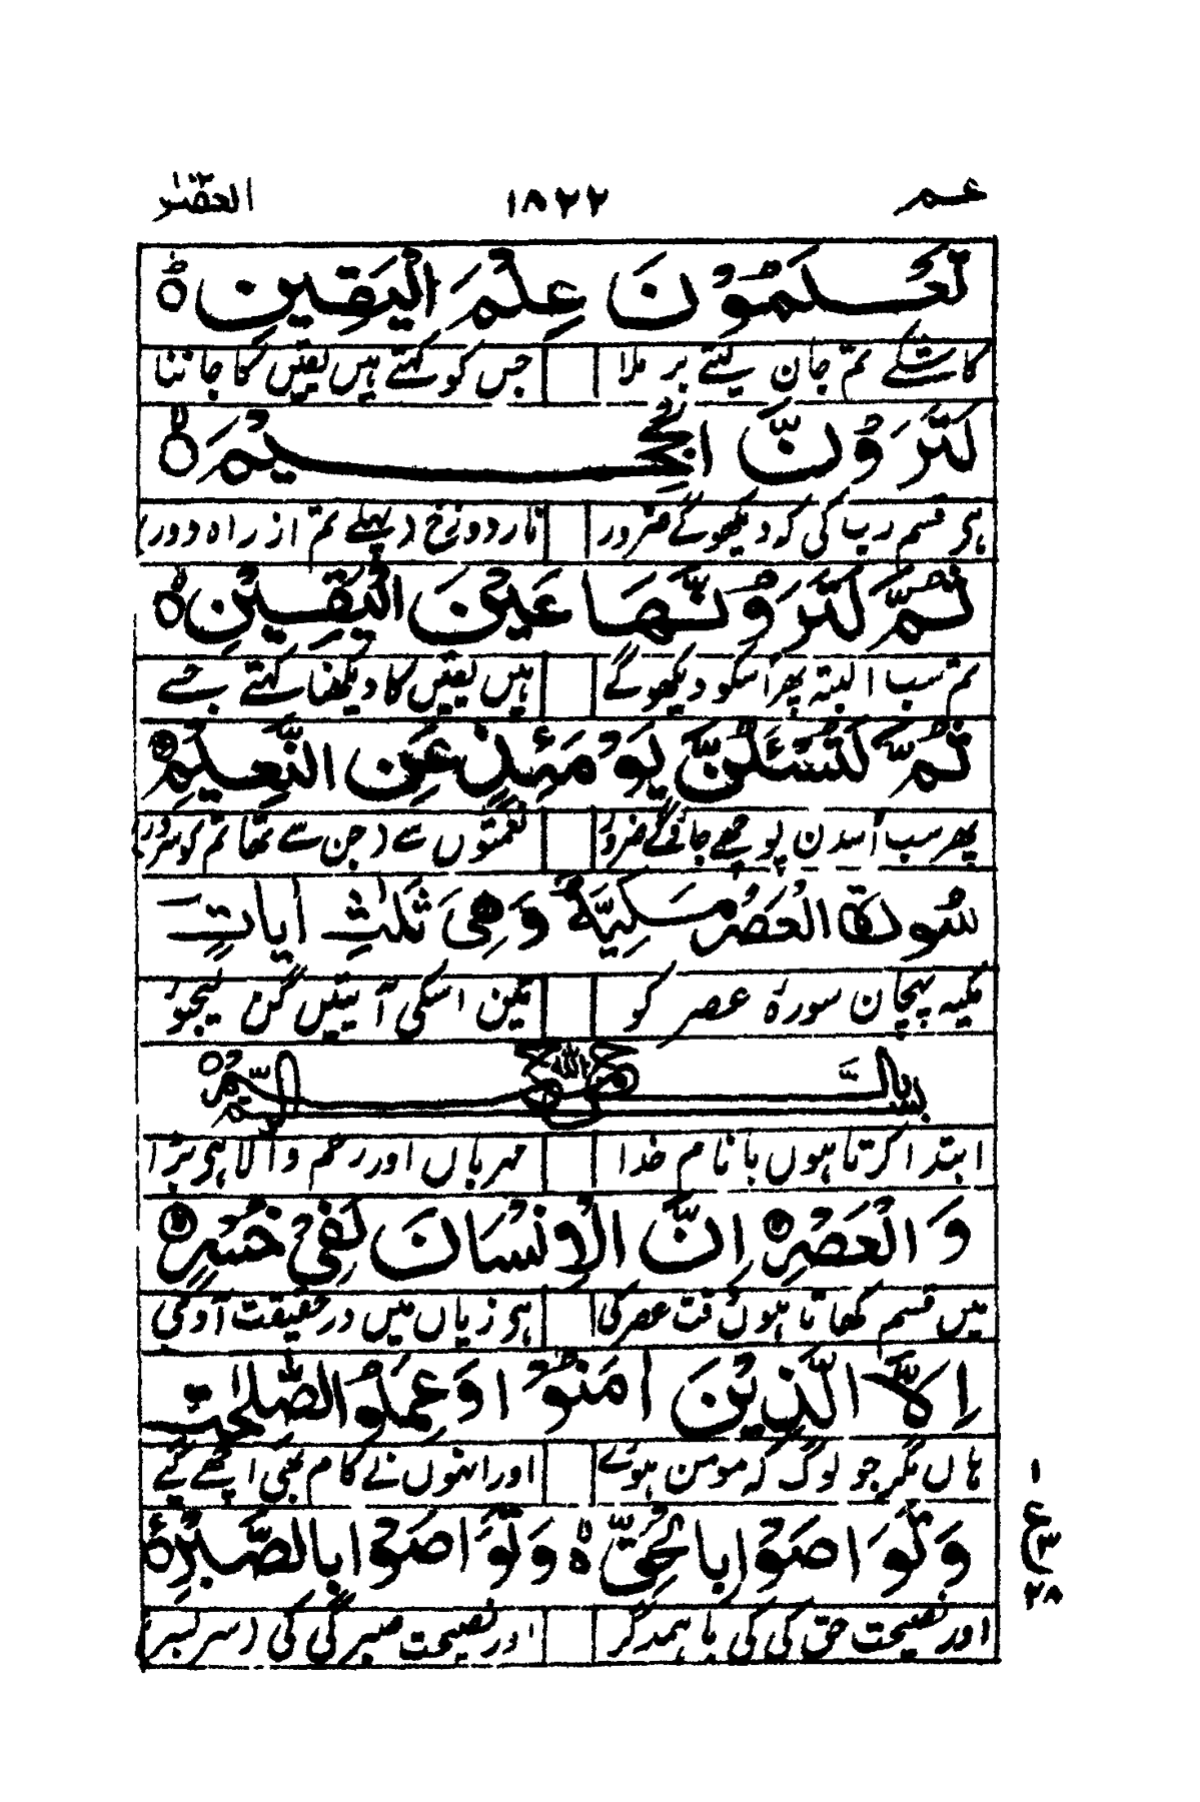 عم ١٨٢٢ العصر ١٠٣
تَعْلَمُوْنَ عِلْمَ الْيَقِيْنِ ؕ
کاشکے تم جان لیتے بر ملا جس کو کہتے ہیں یقیں کا جاننا
لَتَرَوُنَّ الْجَحِيْمَ ۙ
ہی قسم رب کی کہ دیکھوگے ضرور نار دوزخ (پہلے تم از راہ دور)
ثُمَّ لَتَرَوُنَّهَا عَيْنَ الْيَقِيْنِ ۙ
تم سب البتہ پھر اسکو دیکھوگے ہیں یقیں کا دیکھنا کہتے جسے
ثُمَّ لَتُسْـَٔلُنَّ يَوْمَئِذٍ عَنِ النَّعِيْمِ
پھر سب اُسدن پوچھے جائیگے ضرور نعمتوں سے (جن سے تھا تم کو سرور)
سُوْرَةُ الْعَصْرِ مَكِّيَّةٌ وَّهِىَ ثَلٰثُ اٰيَاتٍ
مکیہ پہچان سورۂ عصر کو تین اسکی آیتیں گن لیجو
بِسْمِ اللّٰهِ الرَّحْمٰنِ الرَّحِيْمِ
ابتدا کرتا ہوں با نام خدا مہرباں اور رحم والا ہی بڑا
وَالْعَصْرِ ۙ اِنَّ الْاِنْسَانَ لَفِیْ خُسْرٍ ۙ
میں قسم کھاتا ہوں وقت عصر کی ہی زیاں میں در حقیقت آدمی
اِلَّا الَّذِيْنَ اٰمَنُوْا وَعَمِلُوا الصّٰلِحٰتِ
ہاں مگر جو لوگ کہ مومن ہوئے اور انہوں نے کام بھی اچھے کیے
وَتَوَاصَوْا بِالْحَقِّ ۙ وَتَوَاصَوْا بِالصَّبْرِ
اور نصیحت حق کی کی باہمدگر اور نصیحت صبر کی کی (سر بسر)
١
ع
٣
٢٨